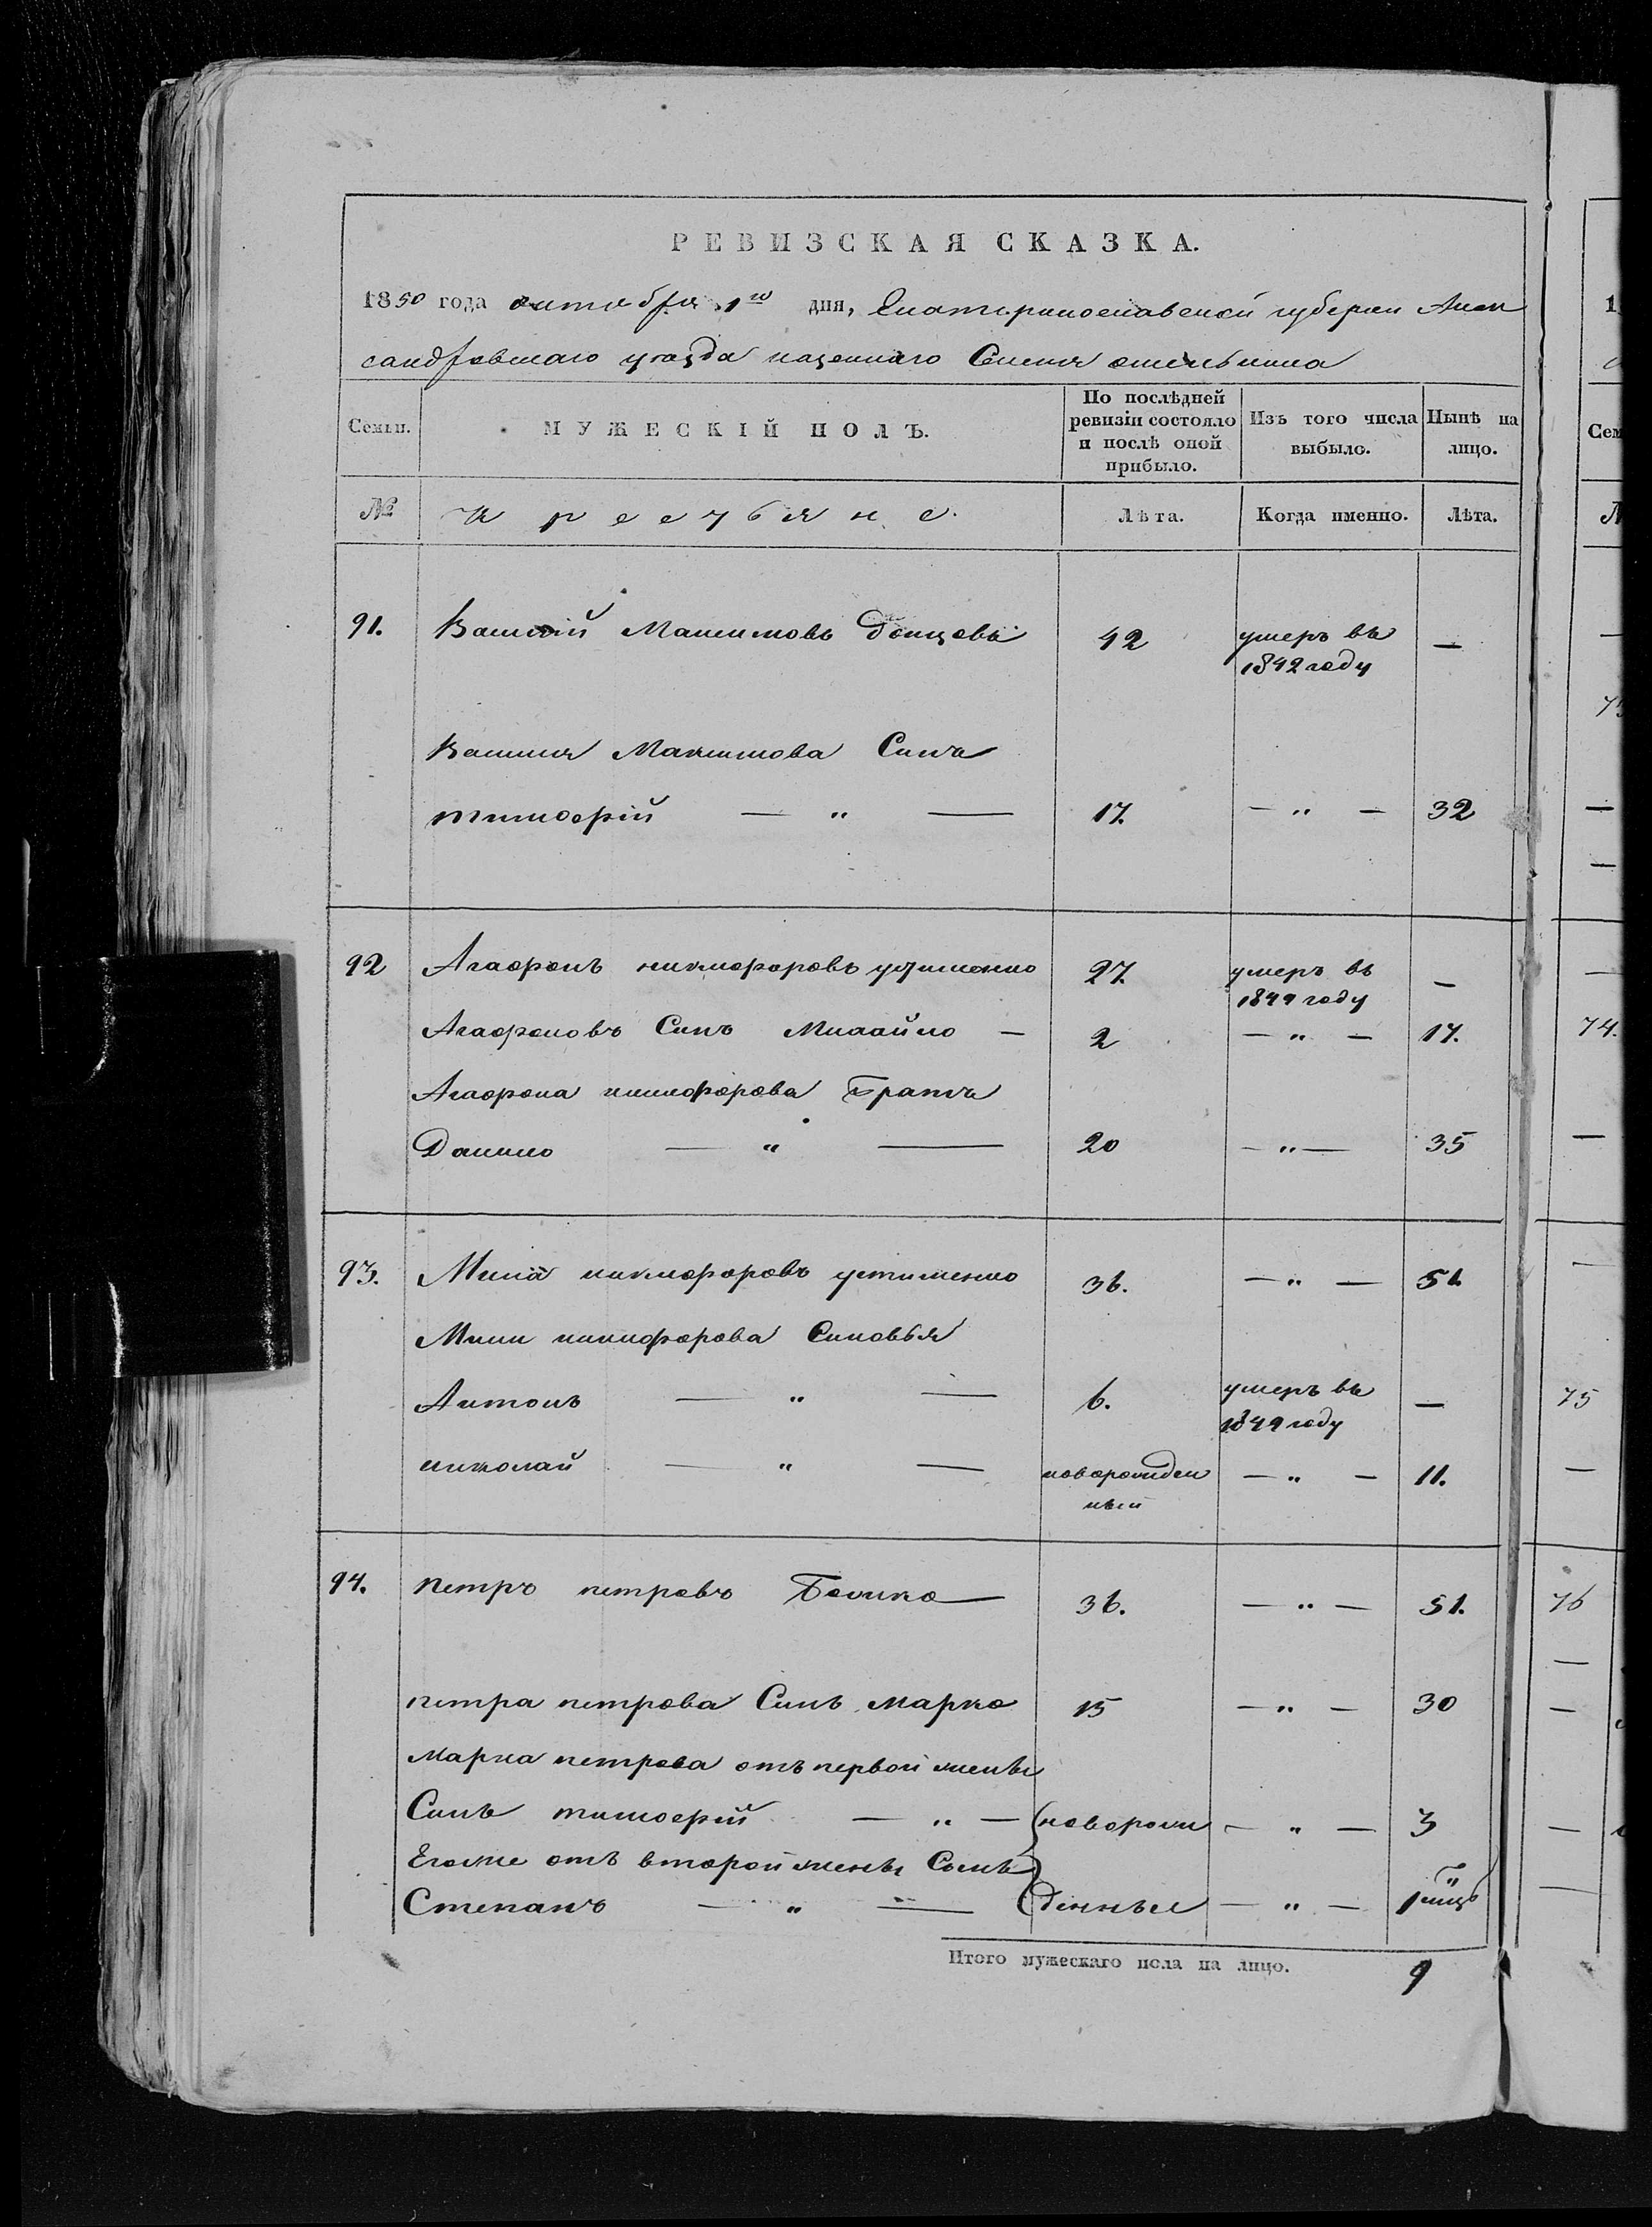 РЕВИЗСКАЯ СКАЗКА.
1850 года октября 1го дня, Екатеринославской губернии Алек
сандровскаго уезда казеннаго Селения
Семьи. МУЖЕСКІЙ ПОЛЪ. По послѣдней ревизіи состояло и послѣ оной прибыло. Изъ того числа выбыло. Нынѣ на лицо.
№ Крестьяне. Лѣта. Когда именно. Лѣта.
91. Василий Максимовъ Донцовъ 42 умеръ въ 1842 году —
Василия Максимова Синъ
тимофей — „ — 17. — „ — 32
92 Агафонъ никифоровъ устименко 27. умеръ въ 1849 году —
Агафоновъ Синъ Михайло — 2 — „ — 17.
Агафона никифорова Братъ
Данило — „ — 20 — „ — 35
93. Мина никифоровъ устименко 36. — „ — 51.
Мини никифорова Синовья
Антонъ — „ — 6. умеръ въ 1849 году —
николай — „ — новорожден ный — „ — 11.
94. Петръ петровъ 36. — „ — 51.
петра петрова Синъ Марко 15 — „ — 30
Марка петрова отъ первой жены
Синъ тимофей — „ — новорож — „ — 3
Егоже отъ второй жены Сынъ
Степанъ — „ — денные — „ — 1
Итого мужескаго пола на лицо. 9
74.
75
76